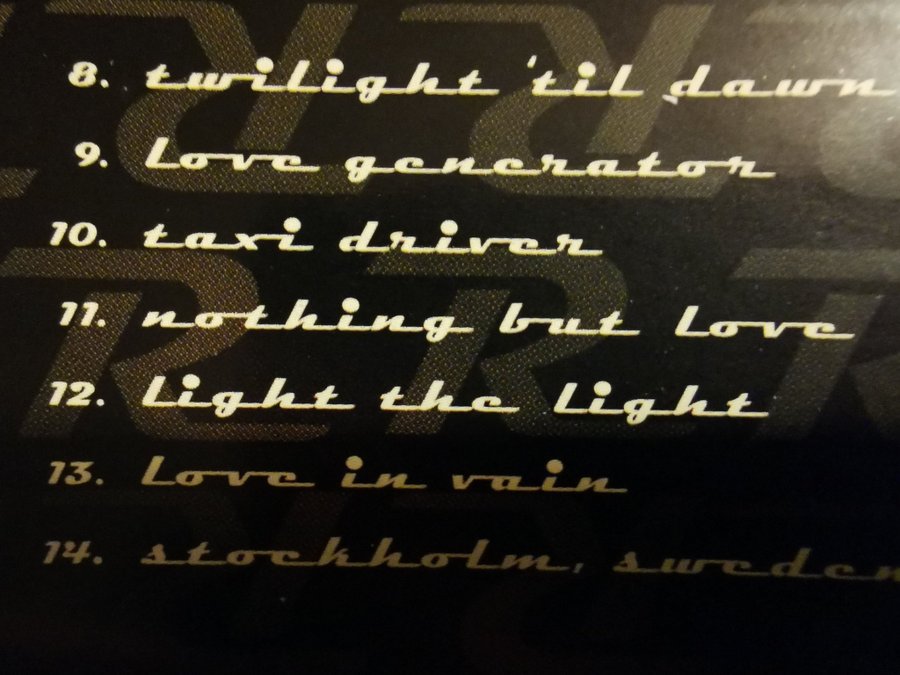 8. twilight 'til dawn
9. love generator
10. taxi driver
11. nothing but love
12. light the light
13. love in vain
14. stockholm, sweden